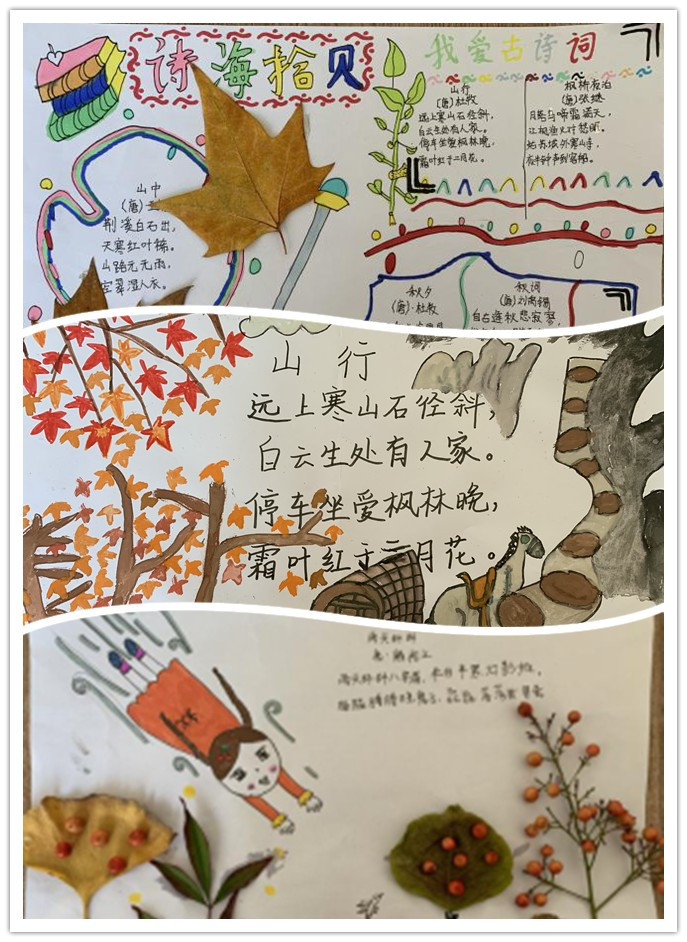 诗海拾贝
我爱古诗词
山中
(唐)
荆溪白石出,
天寒红叶稀。
山路元无雨,
空翠湿人衣。
山行
(唐)杜牧
远上寒山石径斜,
白云生处有人家。
停车坐爱枫林晚,
霜叶红于二月花。
枫桥夜泊
(唐)张继
月落乌啼霜满天,
江枫渔火对愁眠。
姑苏城外寒山寺,
夜半钟声到客船。
秋夕
(唐)·杜牧
秋词
(唐)刘禹锡
自古逢秋悲寂寥,
山行
远上寒山石径斜,
白云生处有人家。
停车坐爱枫林晚,
霜叶红于二月花。